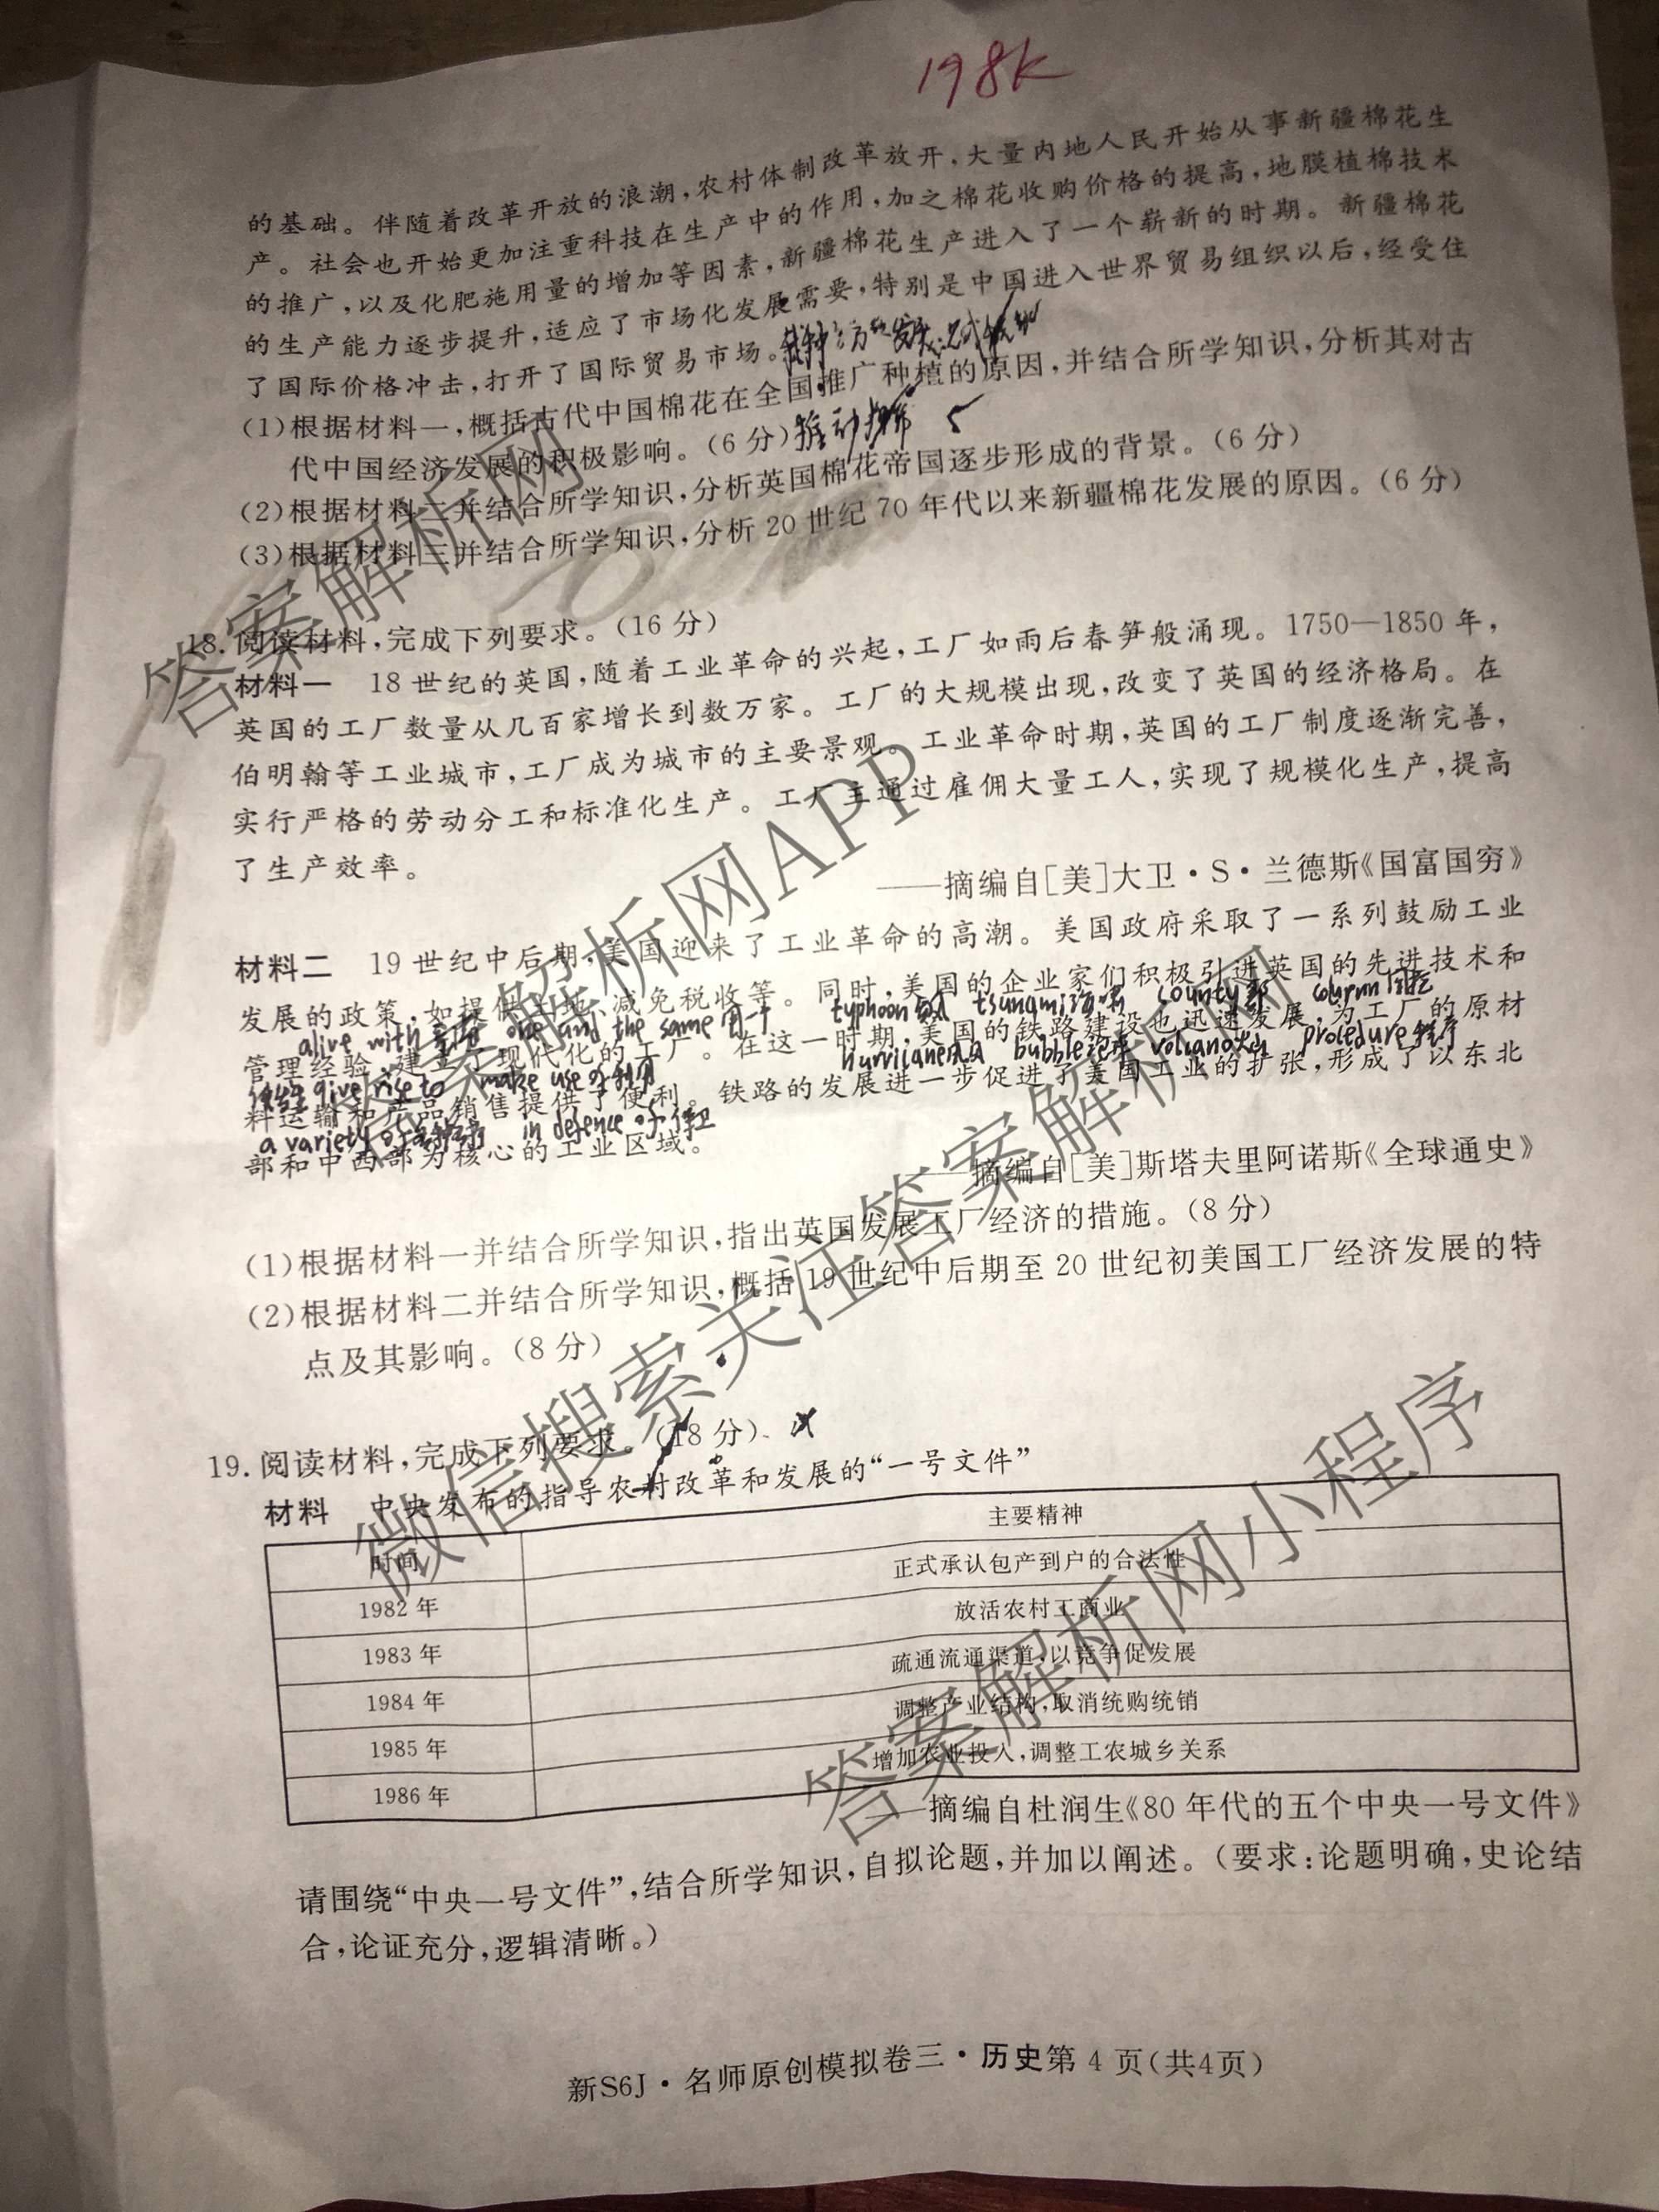 198K
的基础。伴随着改革开放的浪潮,农村体制改革放开,大量内地人民开始从事新疆棉花生
产。社会也开始更加注重科技在生产中的作用,加之棉花收购价格的提高,地膜植棉技术
的推广,以及化肥施用量的增加等因素,新疆棉花生产进入了一个崭新的时期。新疆棉花
的生产能力逐步提升,适应了市场化发展需要,特别是中国进入世界贸易组织以后,经受住
了国际价格冲击,打开了国际贸易市场。
(1)根据材料一,概括古代中国棉花在全国推广种植的原因,并结合所学知识,分析其对古
代中国经济发展的积极影响。(6分)推动
(2)根据材料二并结合所学知识,分析英国棉花帝国逐步形成的背景。(6分)
(3)根据材料三并结合所学知识,分析20世纪70年代以来新疆棉花发展的原因。(6分)
18.阅读材料,完成下列要求。(16分)
材料一 18世纪的英国,随着工业革命的兴起,工厂如雨后春笋般涌现。1750—1850年,
英国的工厂数量从几百家增长到数万家。工厂的大规模出现,改变了英国的经济格局。在
伯明翰等工业城市,工厂成为城市的主要景观。工业革命时期,英国的工厂制度逐渐完善,
实行严格的劳动分工和标准化生产。工厂主通过雇佣大量工人,实现了规模化生产,提高
了生产效率。
——摘编自[美]大卫·S·兰德斯《国富国穷》
材料二 19世纪中后期,美国迎来了工业革命的高潮。美国政府采取了一系列鼓励工业
发展的政策,如提供土地、减免税收等。同时,美国的企业家们积极引进英国的先进技术和
alive with one and the same 同一个 typhoon台风 tsunami海啸 county郡 column
管理经验,建立了现代化的工厂。在这一时期,美国的铁路建设也迅速发展,为工厂的原材
give rise to make use of利用 hurricane飓风 bubble泡沫 volcano火山 procedure程序
料运输和产品销售提供了便利。铁路的发展进一步促进了美国工业的扩张,形成了以东北
a variety of in defence of
部和中西部为核心的工业区域。
——摘编自[美]斯塔夫里阿诺斯《全球通史》
(1)根据材料一并结合所学知识,指出英国发展工厂经济的措施。(8分)
(2)根据材料二并结合所学知识,概括19世纪中后期至20世纪初美国工厂经济发展的特
点及其影响。(8分)
19.阅读材料,完成下列要求。(18分)
材料 中央发布的指导农村改革和发展的“一号文件”
时间 主要精神
1982年 正式承认包产到户的合法性
1983年 放活农村工商业
1984年 疏通流通渠道,以竞争促发展
1985年 调整产业结构,取消统购统销
1986年 增加农业投入,调整工农城乡关系
——摘编自杜润生《80年代的五个中央一号文件》
请围绕“中央一号文件”,结合所学知识,自拟论题,并加以阐述。(要求:论题明确,史论结
合,论证充分,逻辑清晰。)
新S6J·名师原创模拟卷三·历史第4页(共4页)
答案解析网
答案解析网APP
微信搜索关注答案解析网
答案解析网小程序